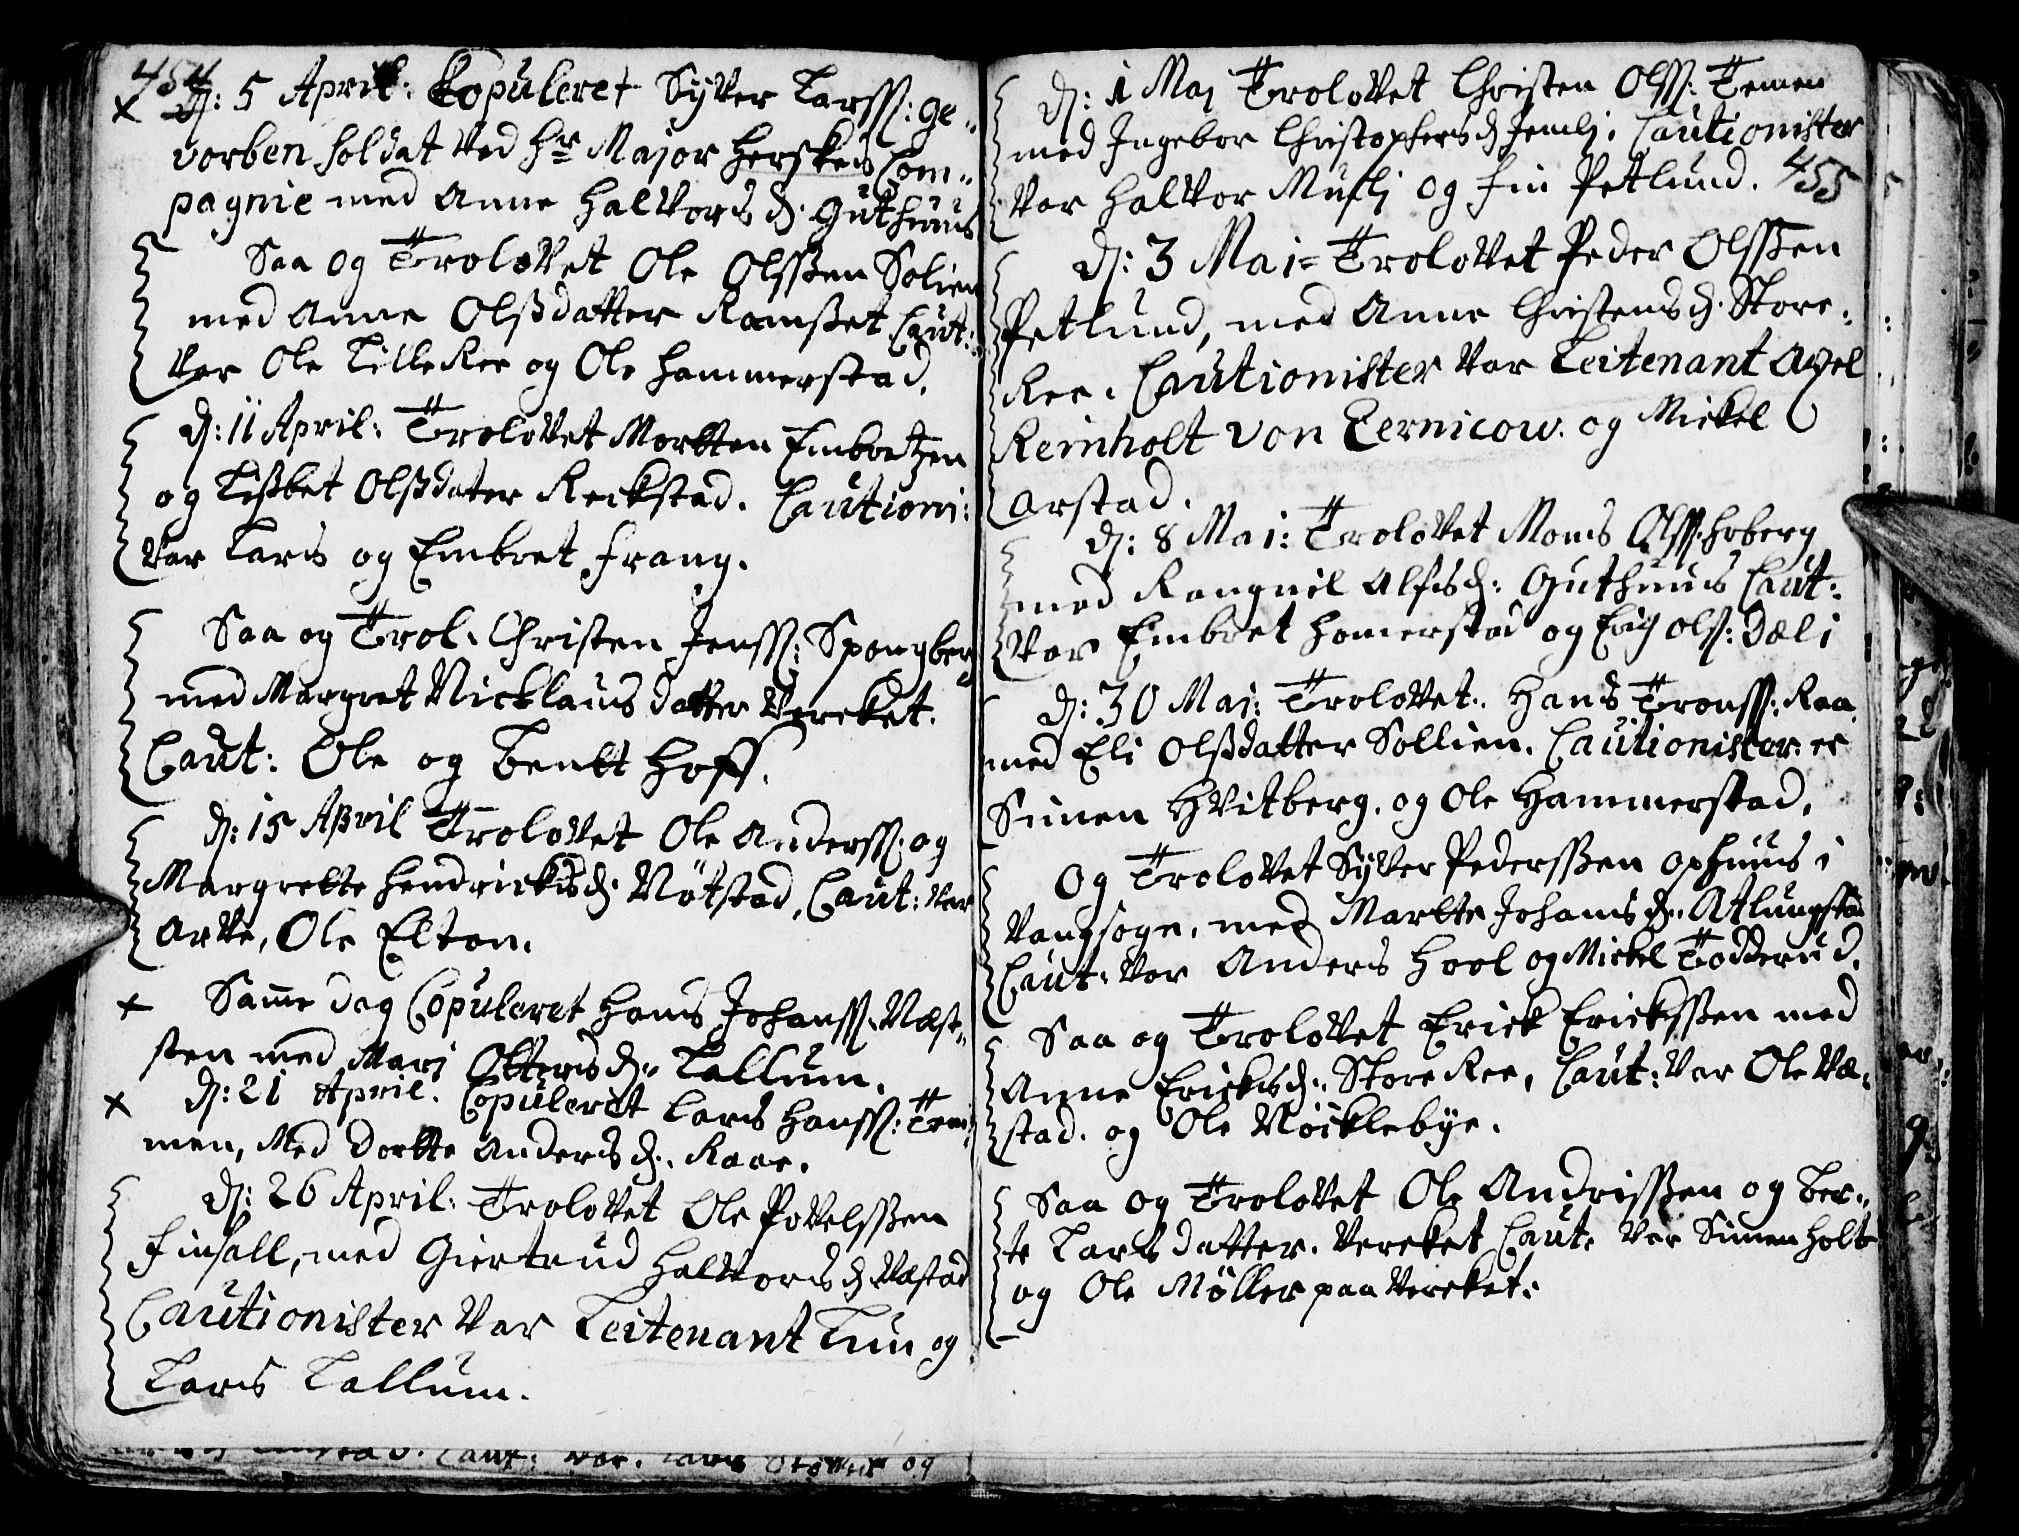 454
× d: 5 April: Copuleret Syver Larss: ge„
vorben Soldat ved hr Major Herskeds Com„
pagnie med Anne Halvorsd. Guthuus
Saa og Trolovet Ole Olssen Solien
med Anne Olsdatter Ramset Caut:
var Ole Lille Ree og Ole Hammerstad.
d: 11 April: Trolovet Morten Embretzen
og Lisbet Olsdater Reckstad. Cautioni:
var Lars og Embret Frang.
Saa og Trol. Christen Jenss: Spongberg
med Margret Nicklausdatter Vercket.
Caut: Ole og Bentt Hoff.
d: 15 April Trolovet Ole Anderss. og
Margrette Hendricksd. Nötstad, Caut: var
Arve, Ole Elton.
× Samme dag Copuleret Hans Johanss. Næst„
sten med Mari Ottersd„ Tallum.
× d: 21 April. Copuleret Lars Hanss: Tem„
men, Med Dortte Andersd. Raae.
d: 26 April. Trolovet Ole Povelssen
Finsall, med Giertrud Halvorsd. Vestad
Cautionister var Leitenant Lun og
Lars Tallum.
d: 1 Maj Trolovet Christen Olss: Temen
med Ingebor Christophersd Jemli. Cautionister
var Halvor Musli og Fin Petlund. 455
d: 3 Mai= Trolovet Peder Olssen
Petlund, med Anne Christensd. Store„
Ree. Cautionister var Leitenant Axel
Reinholt von Zernicow. og Mickel
Arstad.
d: 8 Mai: Trolovet Mons Olss. Hoberg
med Rangnil Alfsd: Guthuus Caut:
var Embret Homerstad og Erich Ols: Dæli
d: 30 Mai: Trolovet. Hans Tronss: Raa
med Eli Olsdatter Sollien. Cautionister: er
Simen Hvitberg. og Ole Hammerstad.
Og Trolovet Syver Pederssen Ophuus i
Vangsogn, med Martte Johansd. Atlungstad
Caut: var Anders Hool og Mickel Tødderud.
Saa og Trolovet Erick Erickssen med
Anne Ericksd. Store Ree, Caut: var Ole Væ„
stad. og Ole Nöcklebye.
Saa og Trolovet Ole Andrissen og Ber„
te Larsdatter. Vercket Caut. var Simen Holte
og Ole Møller paa Vercket.